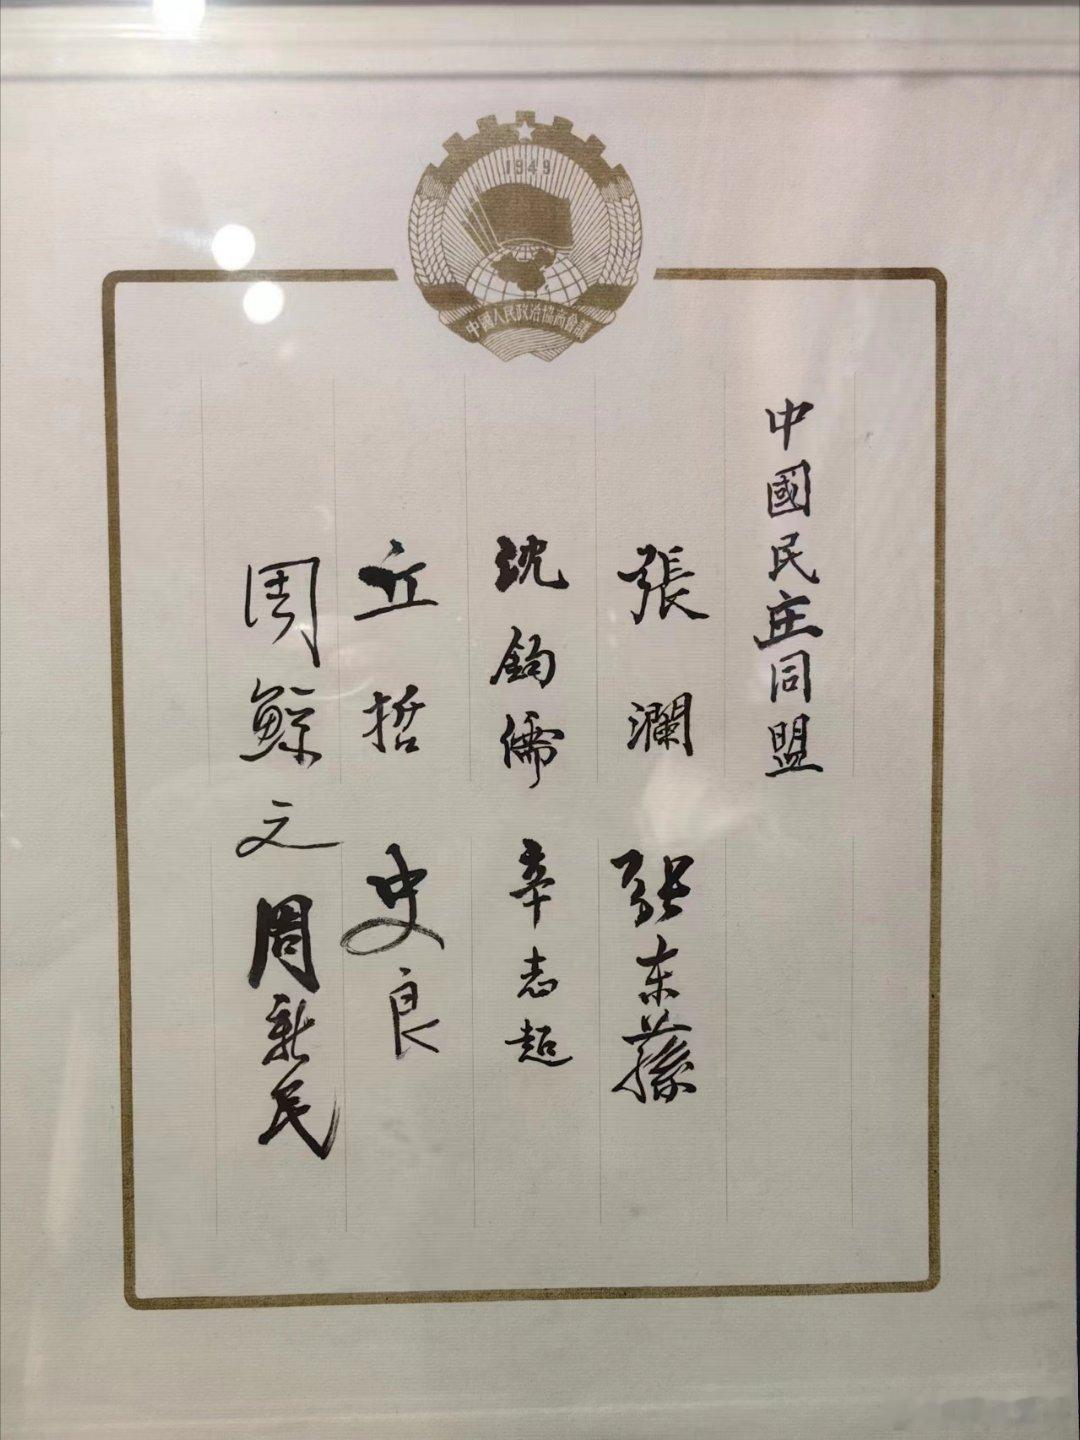 1949
中國人民政治協商會議
中國民主同盟
張瀾 张东蓀
沈鈞儒 辛志超
丘哲 史良
周鯨文 周新民